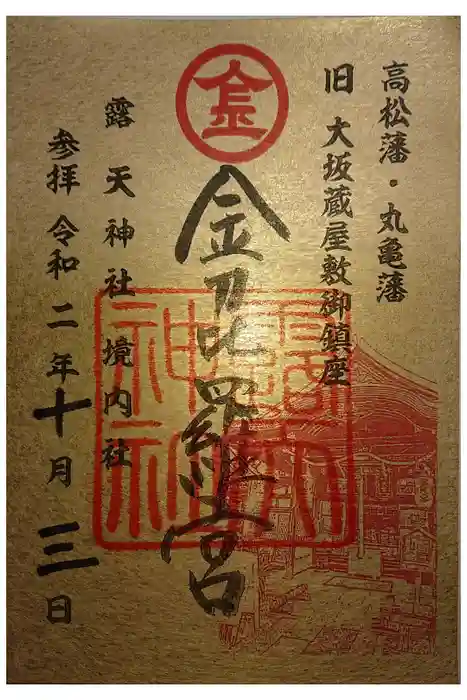 高松藩・丸亀藩
旧 大坂蔵屋敷御鎮座
金
金刀比羅宮
露天神社
露 天神社 境内社
参拝 令和 二年十月 三日